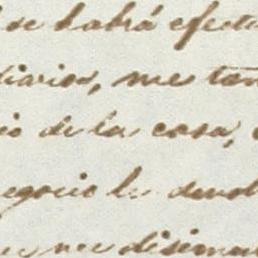 se habrá efectu
diarios, me tan
io de la cosa,
egocio le devol
disimu